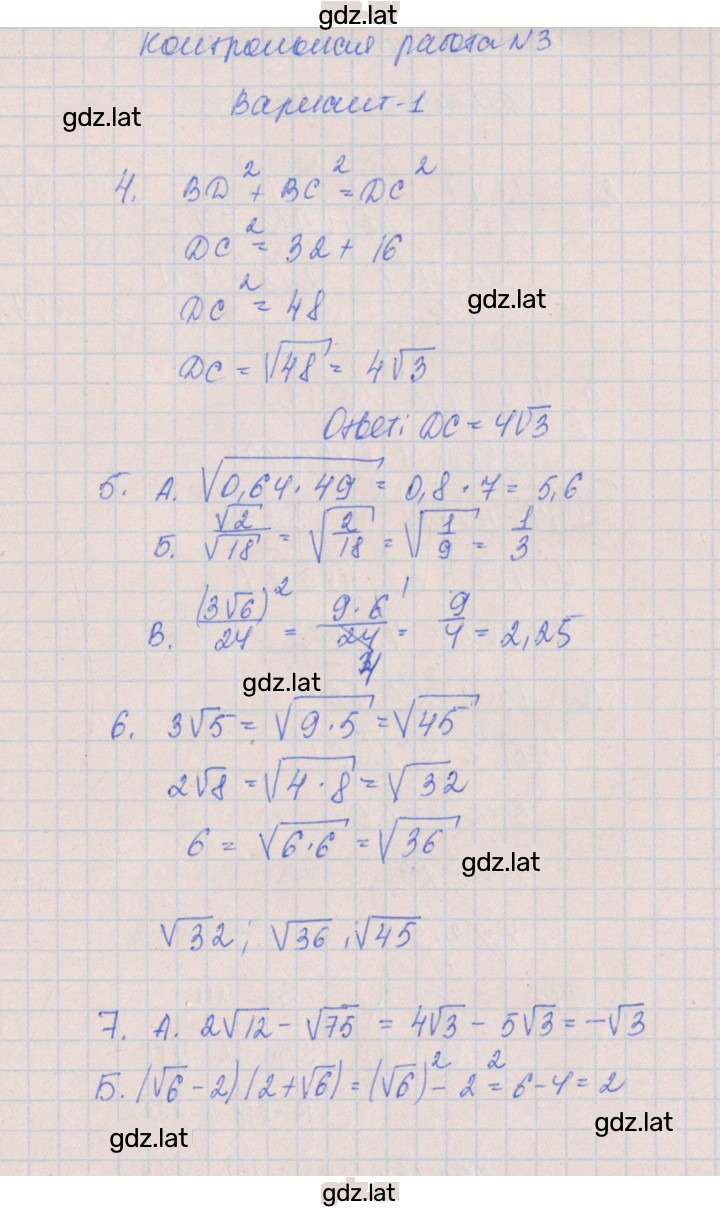 gdz.lat
Контрольная работа N3
gdz.lat
Вариант-1
4. BD² + BC² = DC²
DC² = 32 + 16
DC² = 48
gdz.lat
DC = √48 = 4√3
Ответ: DC = 4√3
5. А. √0,64·49 = 0,8·7 = 5,6
Б. √2/√18 = √2/18 = √1/9 = 1/3
В. (3√6)²/24 = 9·6/24 = 9/4 = 2,25
1
4
gdz.lat
6. 3√5 = √9·5 = √45
2√8 = √4·8 = √32
6 = √6·6 = √36
gdz.lat
√32; √36; √45
7. А. 2√12 - √75 = 4√3 - 5√3 = -√3
Б. (√6 - 2)(2 + √6) = (√6)² - 2² = 6 - 4 = 2
gdz.lat
gdz.lat
gdz.lat